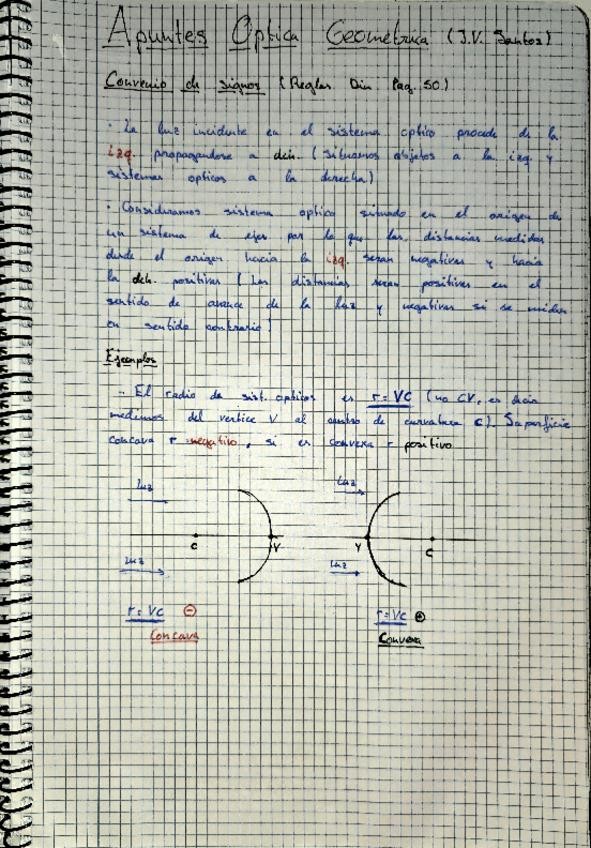 Apuntes Optica Geometrica (J.V. Santos)
Convenio de signos (Reglas Din Pag. 50)
· La luz incidente en el sistema optico procede de la
izq. propagandose a dch. (Situamos objetos a la izq. y
sistemas opticos a la derecha)
· Consideramos sistema optico situado en el origen de
un sistema de ejes por lo que las distancias medidas
desde el origen hacia la izq. seran negativas y hacia
la dch. positivas (Las distancias seran positivas en el
sentido de avance de la luz y negativas si se miden
en sentido contrario)
Ejemplos
- El radio de sist. opticos es r = VC (no CV, es decir
medimos del vertice V al centro de curvatura C). Superficie
concava r negativo, si es convexa r positivo.
Luz Luz
C V V C
Luz Luz
r = VC ⊖ r = VC ⊕
Concava Convexa